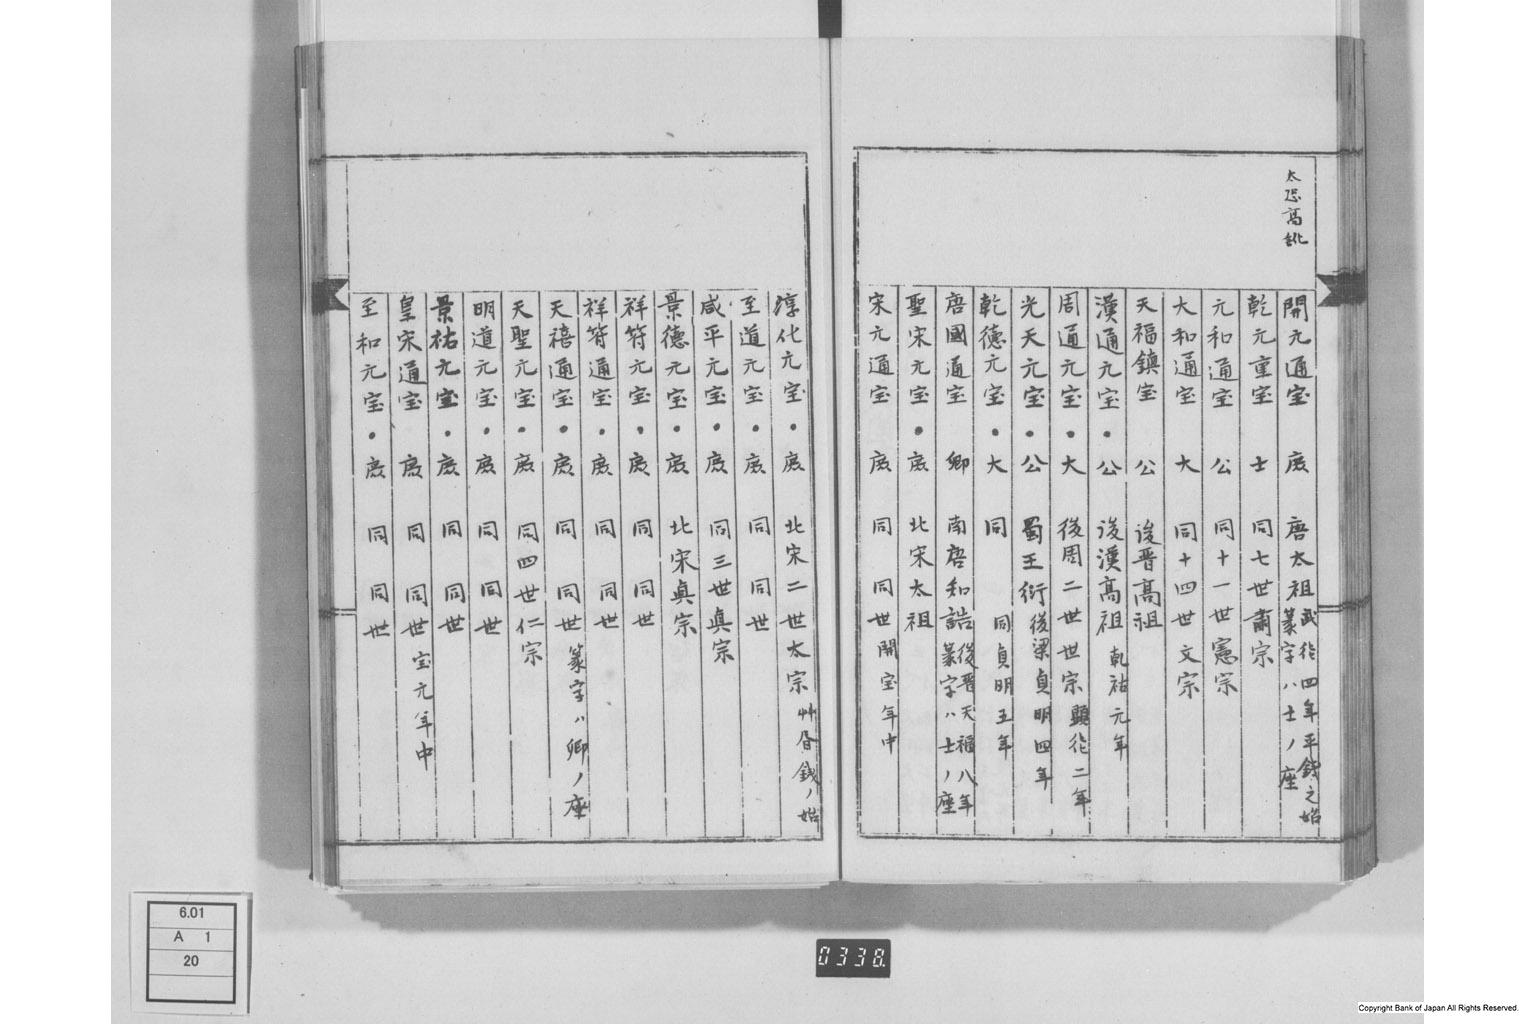 開元通宝 庶 唐太祖 武徳四年平錢之始 篆字ハ士ノ座
乾元重宝 士 同七世肅宗
元和通宝 公 同十一世憲宗
大和通宝 大 同十四世文宗
天福鎮宝 公 後晋高祖
漢通元宝・公 後漢高祖 乾祐元年
周通元宝・大 後周二世世宗 顕徳二年
光天元宝・公 蜀王衍 後梁貞明四年
乾徳元宝・大 同 同貞明五年
唐國通宝 卿 南唐和誥 後晋天福八年 篆字ハ士ノ座
聖宋元宝・庶 北宋太祖
宋元通宝 庶 同 同世 開宝年中
淳化元宝・庶 北宋二世太宗 艸昏錢ノ始
至道元宝・庶 同 同世
咸平元宝・庶 同三世眞宗
景德元宝・庶 北宋眞宗
祥符元宝・庶 同 同世
祥符通宝・庶 同 同世
天禧通宝・庶 同 同世 篆字ハ卿ノ座
天聖元宝・庶 同四世仁宗
明道元宝・庶 同 同世
景祐元宝・庶 同 同世
皇宋通宝 庶 同 同世 宝元年中
至和元宝・庶 同 同世
6.01
A 1
20
0338
Copyright Bank of Japan All Rights Reserved.